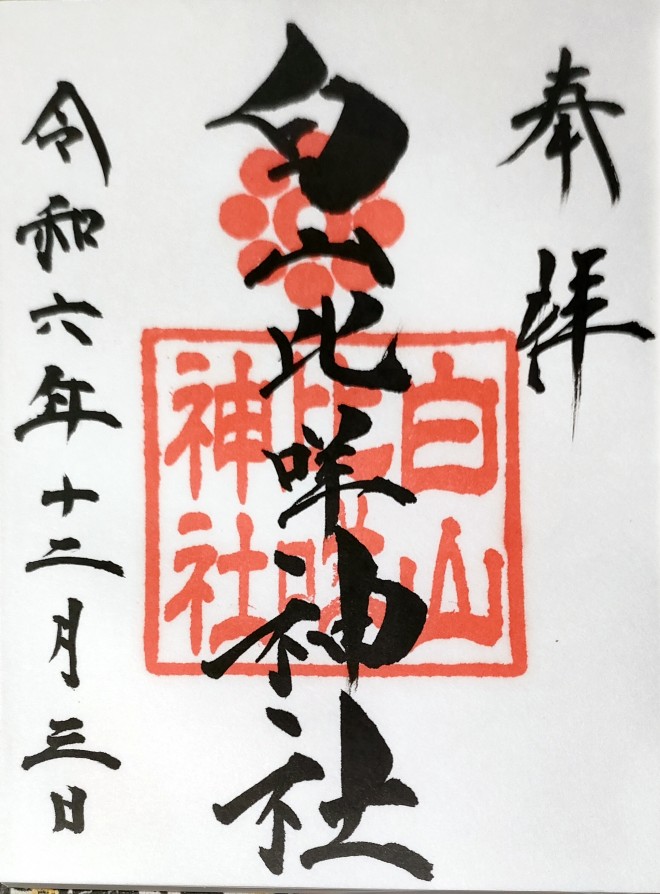 奉拝
白山比咩神社
白山
比咩
神社
令和六年十二月三日